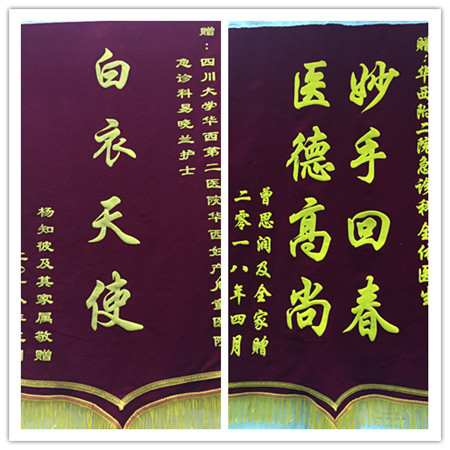 赠:四川大学华西第二医院华西妇产儿童医院
急诊科易晓兰护士
白衣天使
杨知彼及其家属敬赠
二〇一八年
赠:华西附二院急诊科全体医生
妙手回春
医德高尚
曾思润及全家赠
二零一八年四月